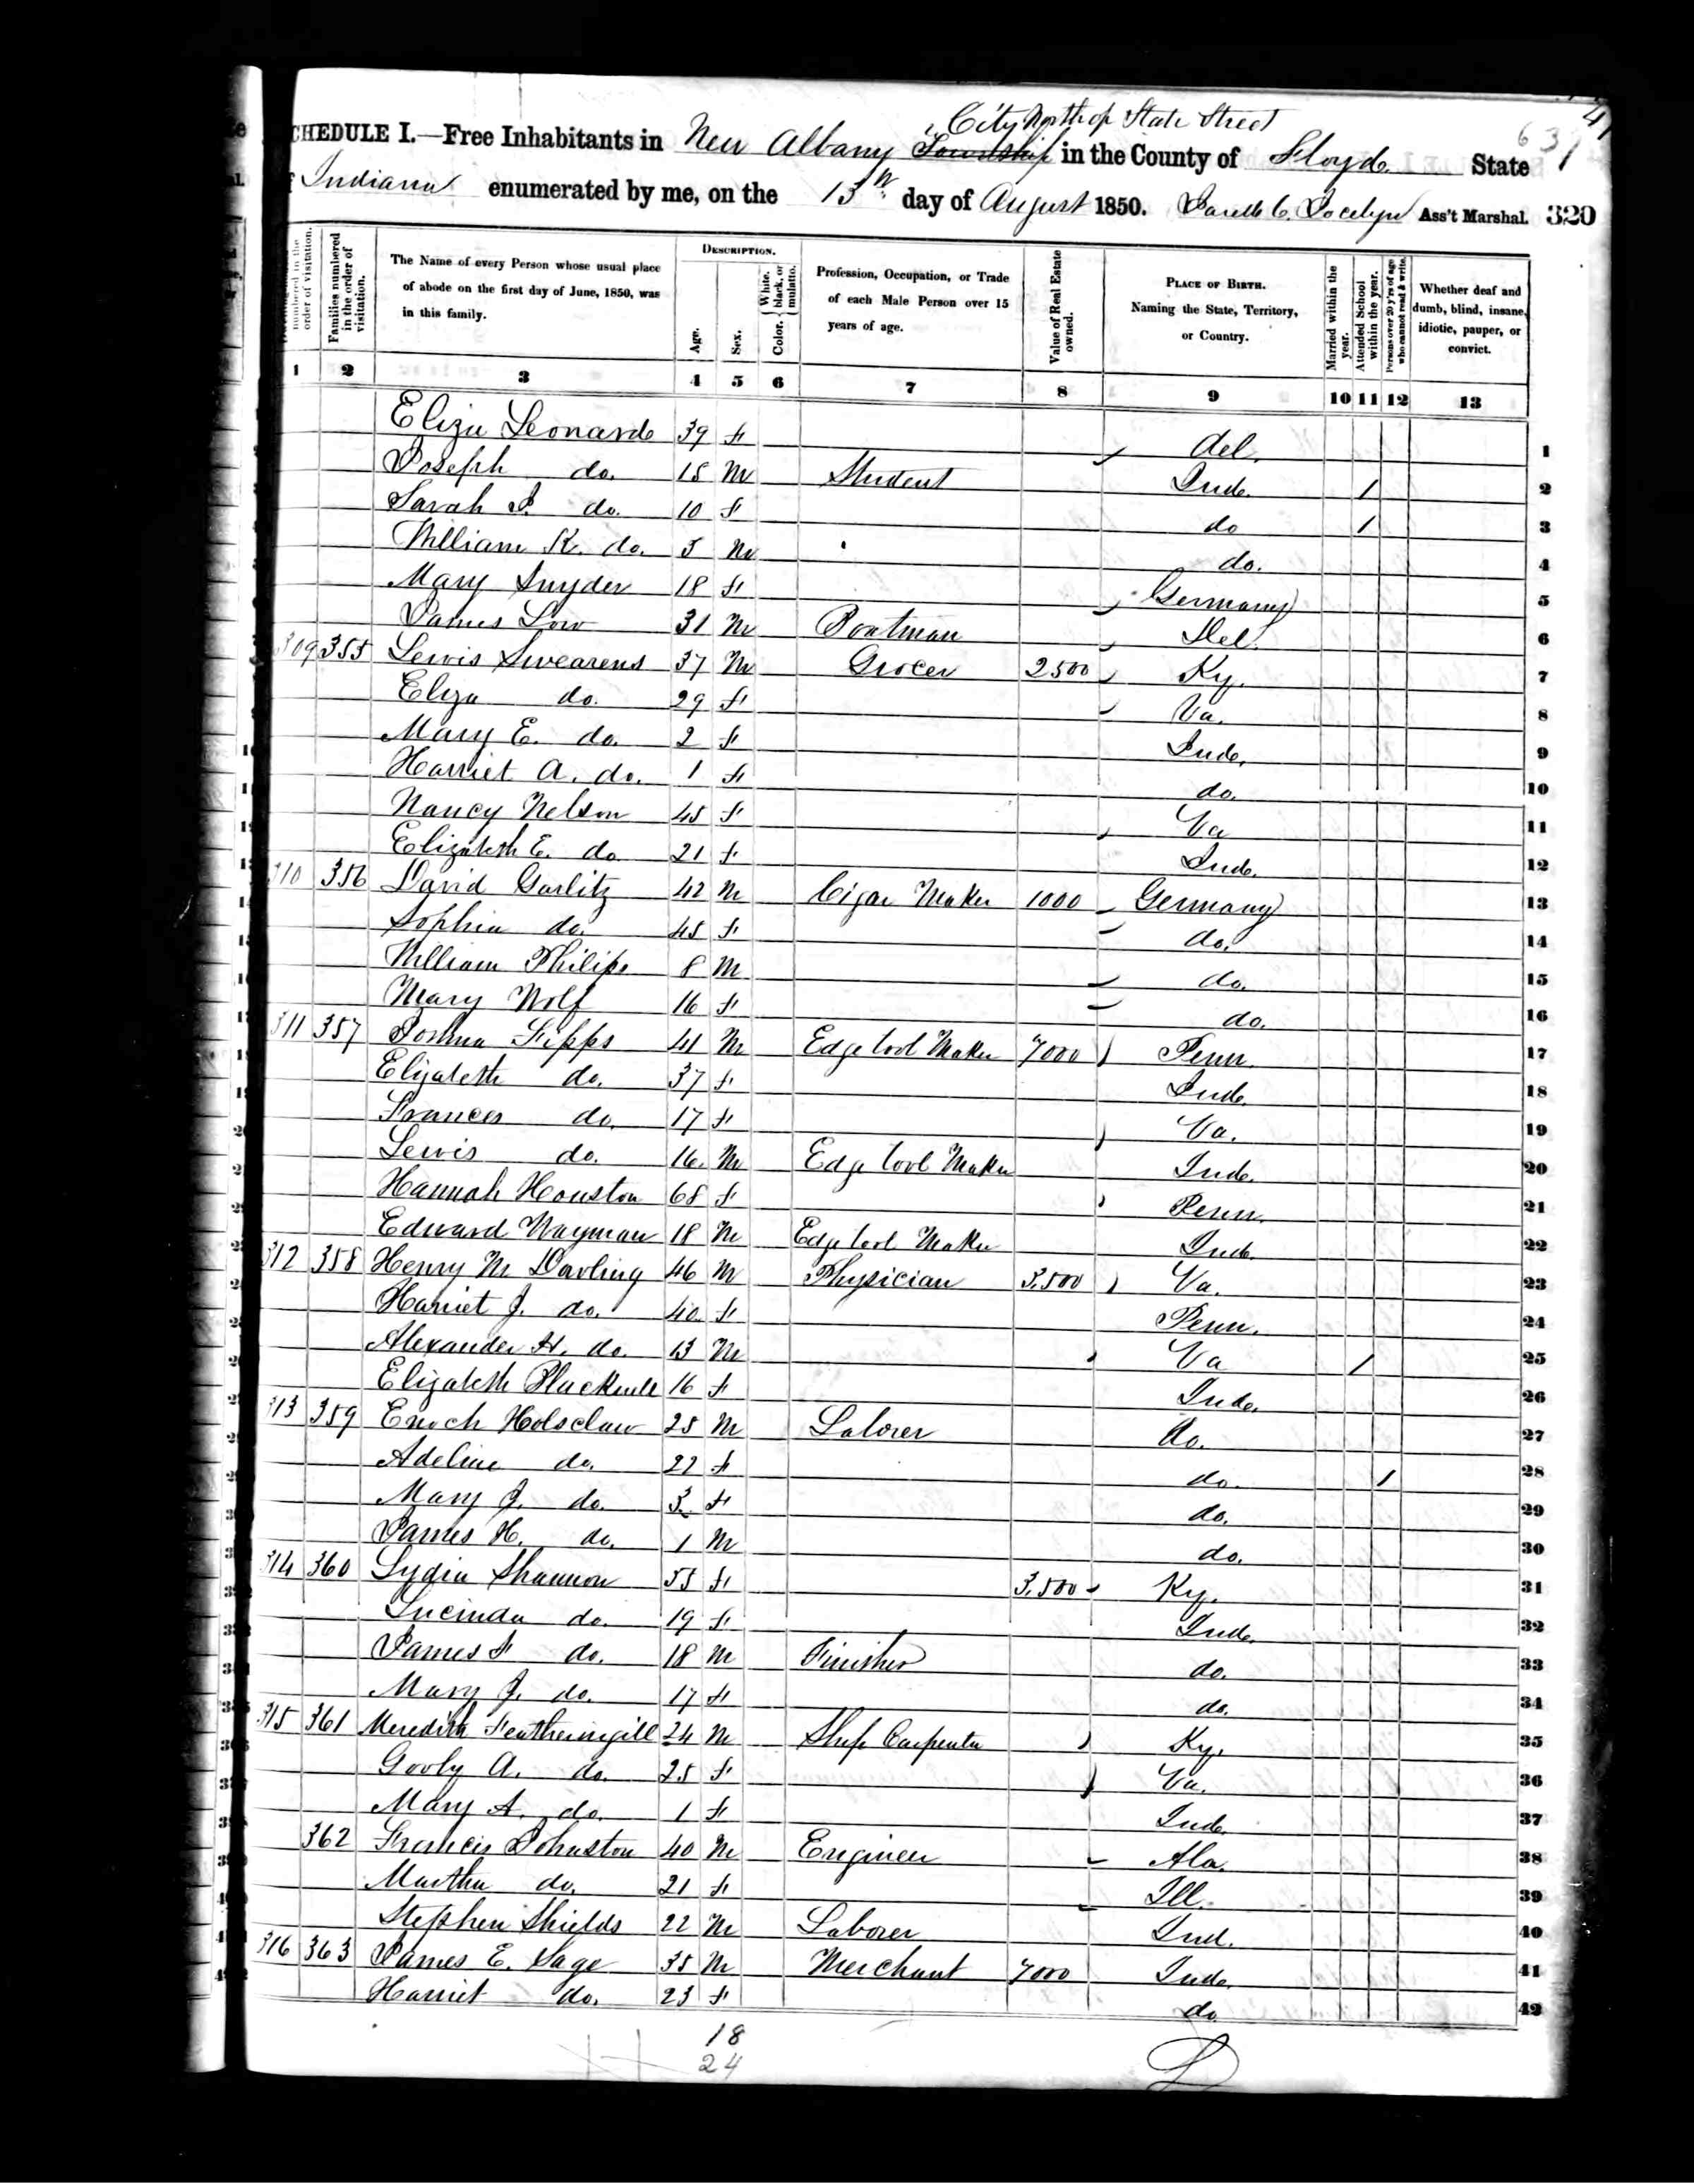 City North of State Street
631
41
SCHEDULE I.—Free Inhabitants in New Albany Township in the County of Floyd State
of Indiana enumerated by me, on the 13th day of August 1850. Ass't Marshal. 320
numbered in the order of visitation.
Families numbered in the order of visitation.
The Name of every Person whose usual place of abode on the first day of June, 1850, was in this family.
DESCRIPTION.
Age.
Sex.
Color. { White, black, or mulatto.
Profession, Occupation, or Trade of each Male Person over 15 years of age.
Value of Real Estate owned.
PLACE OF BIRTH. Naming the State, Territory, or Country.
Married within the year.
Attended School within the year.
Persons over 20 y'rs of age who cannot read & write.
Whether deaf and dumb, blind, insane, idiotic, pauper, or convict.
1 2 3 4 5 6 7 8 9 10 11 12 13
Eliza Leonard 39 F Del. 1
Joseph do. 15 M Student Ind. 1 2
Sarah J. do. 10 F do 1 3
William K. do. 5 M do. 4
Mary Snyder 18 F Germany 5
James Low 31 M Boatman Del. 6
309 355 Lewis Swearens 37 M Grocer 2500 Ky. 7
Eliza do. 29 F Va. 8
Mary E. do. 2 F Ind. 9
Harriet A. do. 1 F do. 10
Nancy Nelson 45 F Va 11
Elizabeth E. do. 21 F Ind. 12
310 356 David Garlitz 42 M Cigar Maker 1000 Germany 13
Sophia do. 45 F do. 14
William Philips 8 M do. 15
Mary Wolf 16 F do. 16
311 357 Joshua Fipps 41 M Edge tool Maker 7000 Penn. 17
Elizabeth do. 37 F Ind. 18
Frances do. 17 F Va. 19
Lewis do. 16 M Edge tool Maker Ind. 20
Hannah Houston 68 F Penn. 21
Edward Wayman 18 M Edge tool Maker Ind. 22
312 358 Henry M. Darling 46 M Physician 3.500 Va. 23
Harriet J. do. 40 F Penn. 24
Alexander H. do. 13 M Va 1 25
Elizabeth 16 F Ind. 26
313 359 Enoch Holsclaw 25 M Laborer do. 27
Adeline do. 22 F do. 1 28
Mary J. do. 3 F do. 29
James H. do. 1 M do. 30
314 360 Lydia Shannon 55 F 3.500 Ky. 31
Lucinda do. 19 F Ind. 32
James F do. 18 M Finisher do. 33
Mary J. do. 17 F do. 34
315 361 Meredith Featheringill 24 M Ship Carpenter Ky. 35
A. do. 25 F Va. 36
Mary A. do. 1 F Ind. 37
362 Francis Johnston 40 M Engineer Ala. 38
Martha do. 21 F Ill. 39
Stephen Shields 22 M Laborer Ind. 40
316 363 James E. Sage 35 M Merchant 7000 Ind. 41
Harriet do. 23 F do 42
18
24